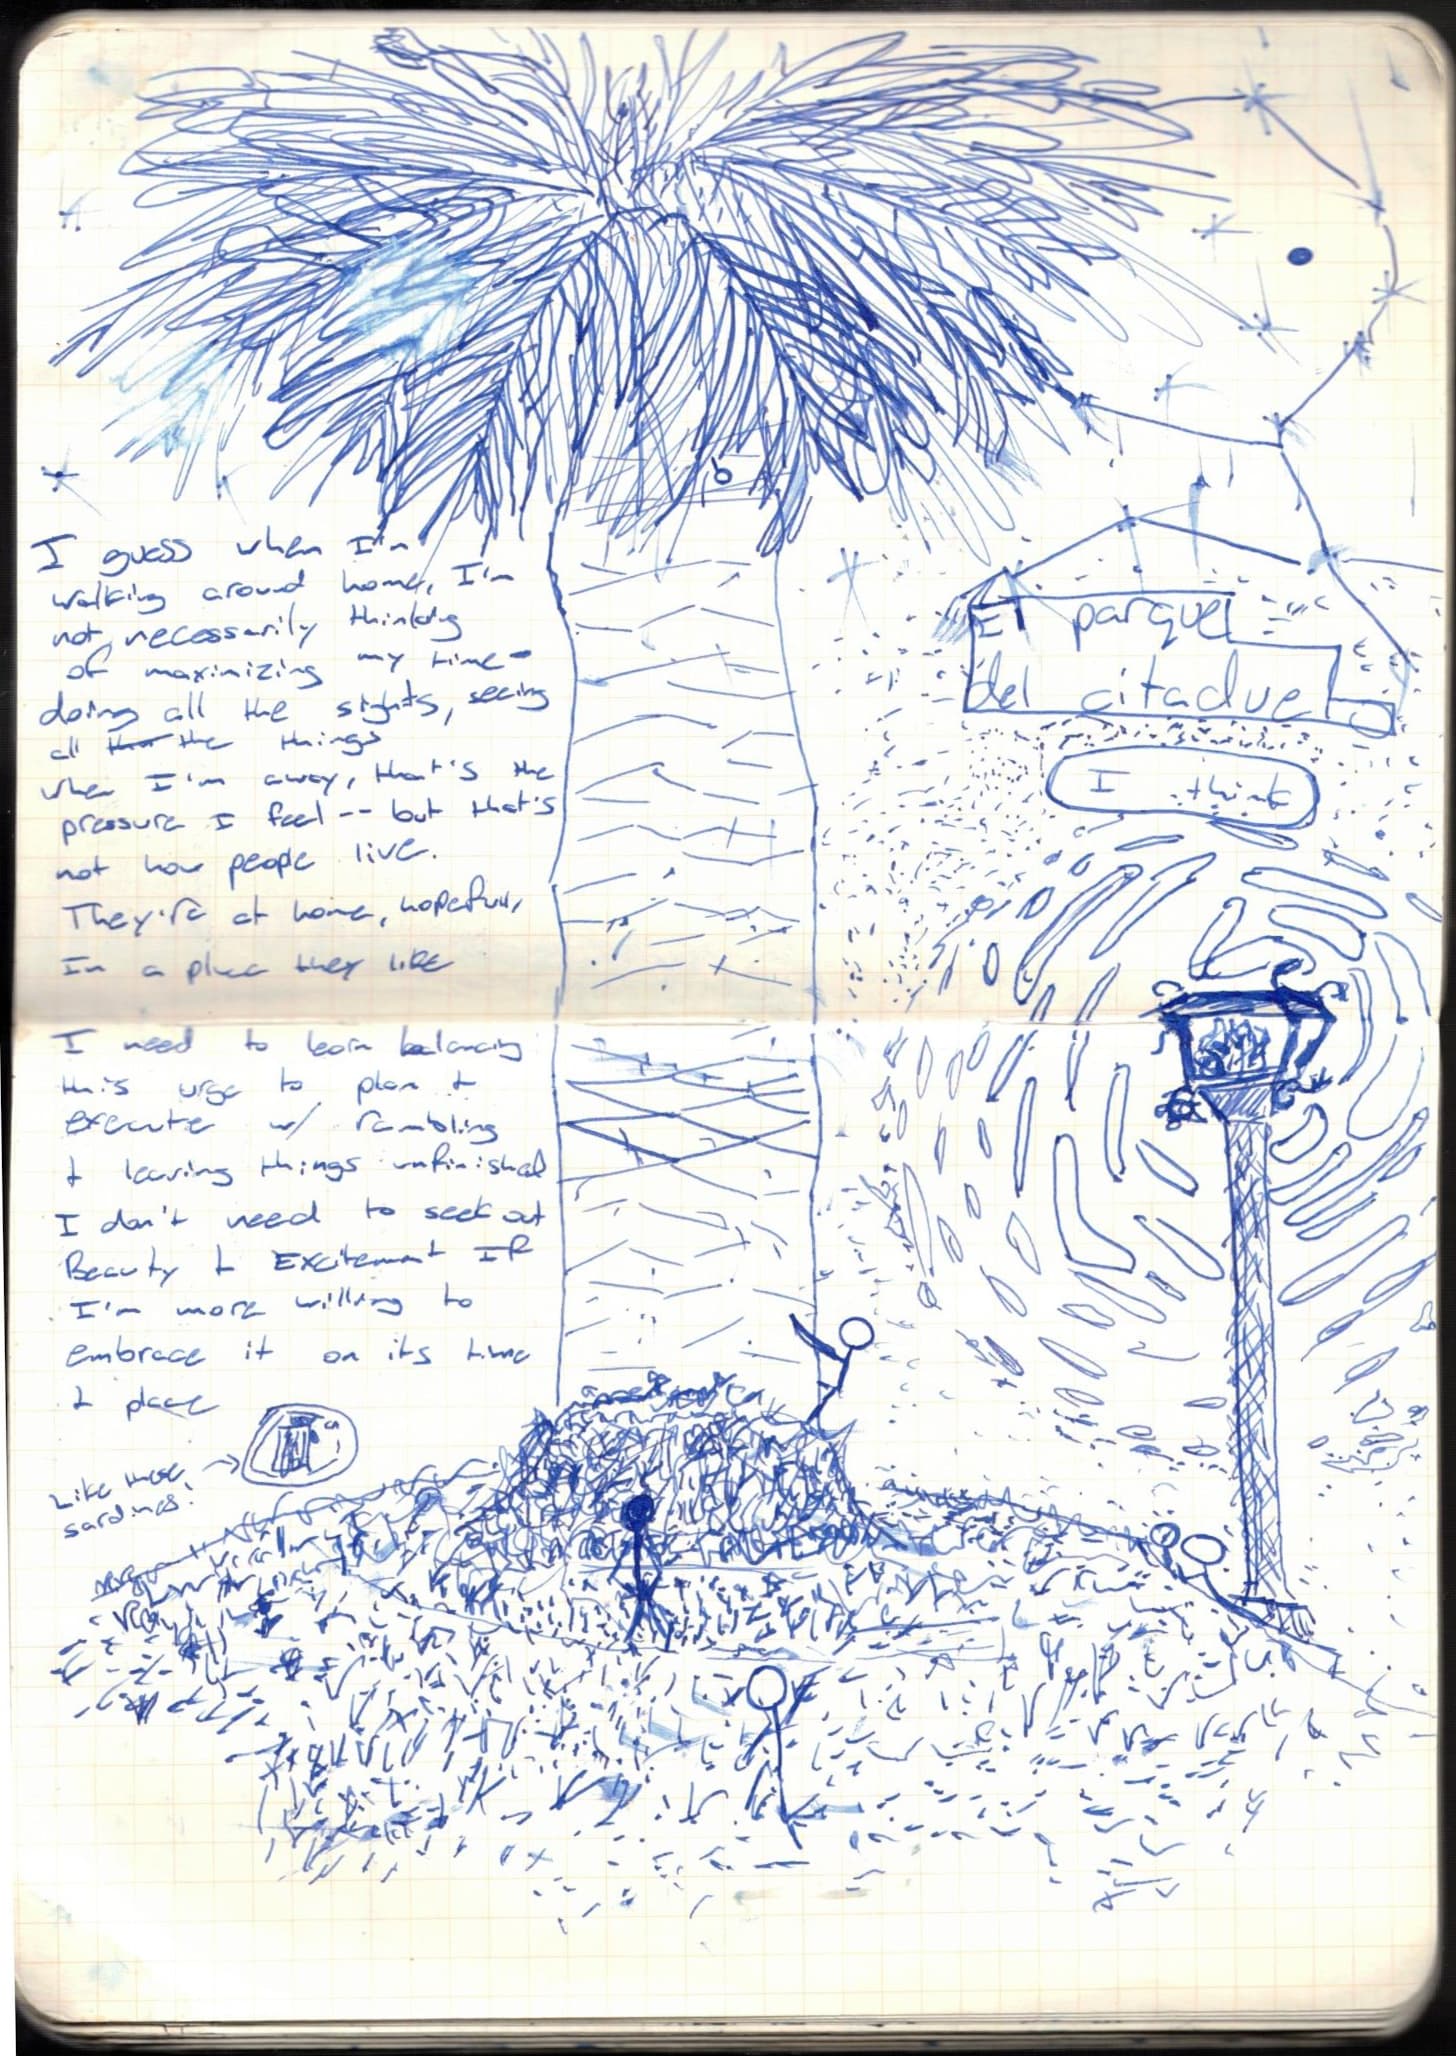 I guess when I'm
walking around home, I'm
not necessarily thinking
of maximizing my time-
doing all the sights, seeing
all the things
when I'm away, that's the
pressure I feel -- but that's
not how people live.
They're at home, hopefully,
In a place they like
I need to learn balancing
this urge to plan +
execute w/ rambling
+ leaving things unfinished
I don't need to seek out
Beauty + Excitement If
I'm more willing to
embrace it on its time
+ place
Like these
sardines!
El parque
del citadue
I think